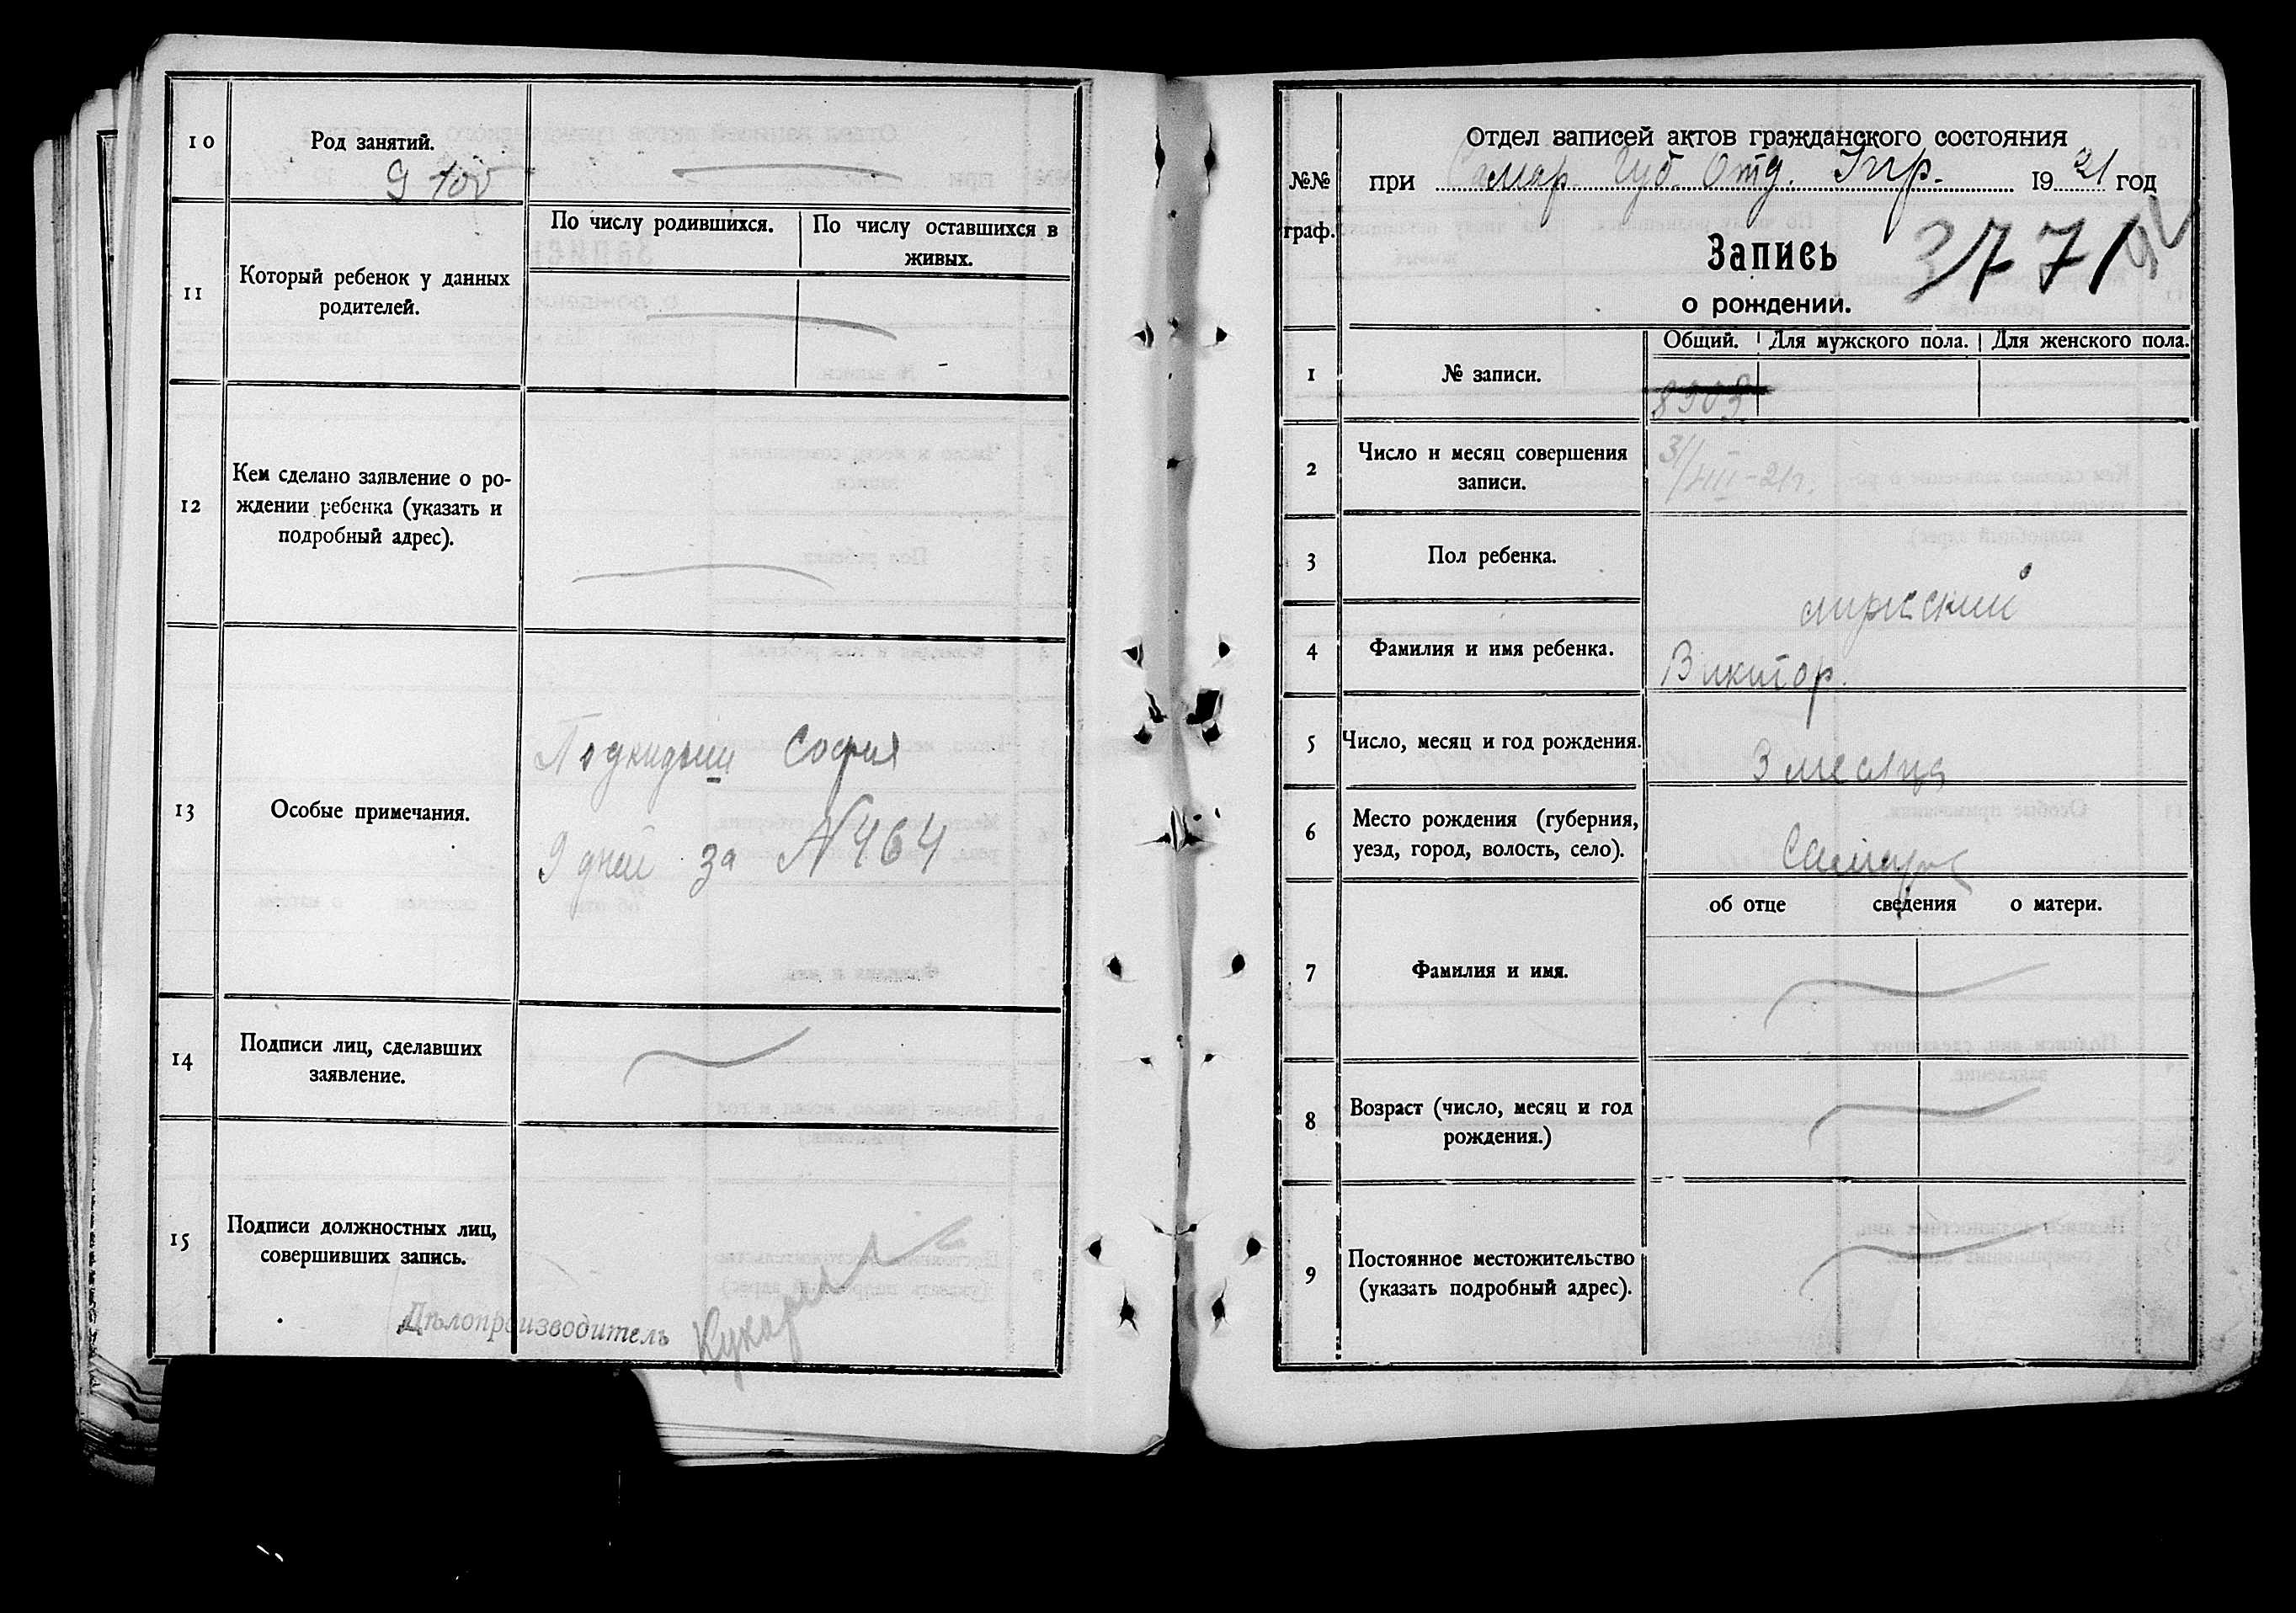 10
Род занятий.
9
11
Который ребенок у данных
родителей.
По числу родившихся.
По числу оставшихся в
живых.
12
Кем сделано заявление о ро-
ждении ребенка (указать и
подробный адрес).
13
Особые примечания.
Подкидыш София
9 дней за N464
14
Подписи лиц, сделавших
заявление.
15
Подписи должностных лиц,
совершивших запись.
Дѣлопроизводитель
№№
граф.
Отдел записей актов гражданского состояния
при Самар. Губ. Отд. Упр. 1921 год
Запись 3771
о рождении.
1
№ записи.
Общий.
Для мужского пола.
Для женского пола.
8903
2
Число и месяц совершения
записи.
31/VIII-21г.
3
Пол ребенка.
мужский
4
Фамилия и имя ребенка.
Виктор.
5
Число, месяц и год рождения.
3 месяца
6
Место рождения (губерния,
уезд, город, волость, село).
Самара
об отце сведения о матери.
7
Фамилия и имя.
8
Возраст (число, месяц и год
рождения.)
9
Постоянное местожительство
(указать подробный адрес).